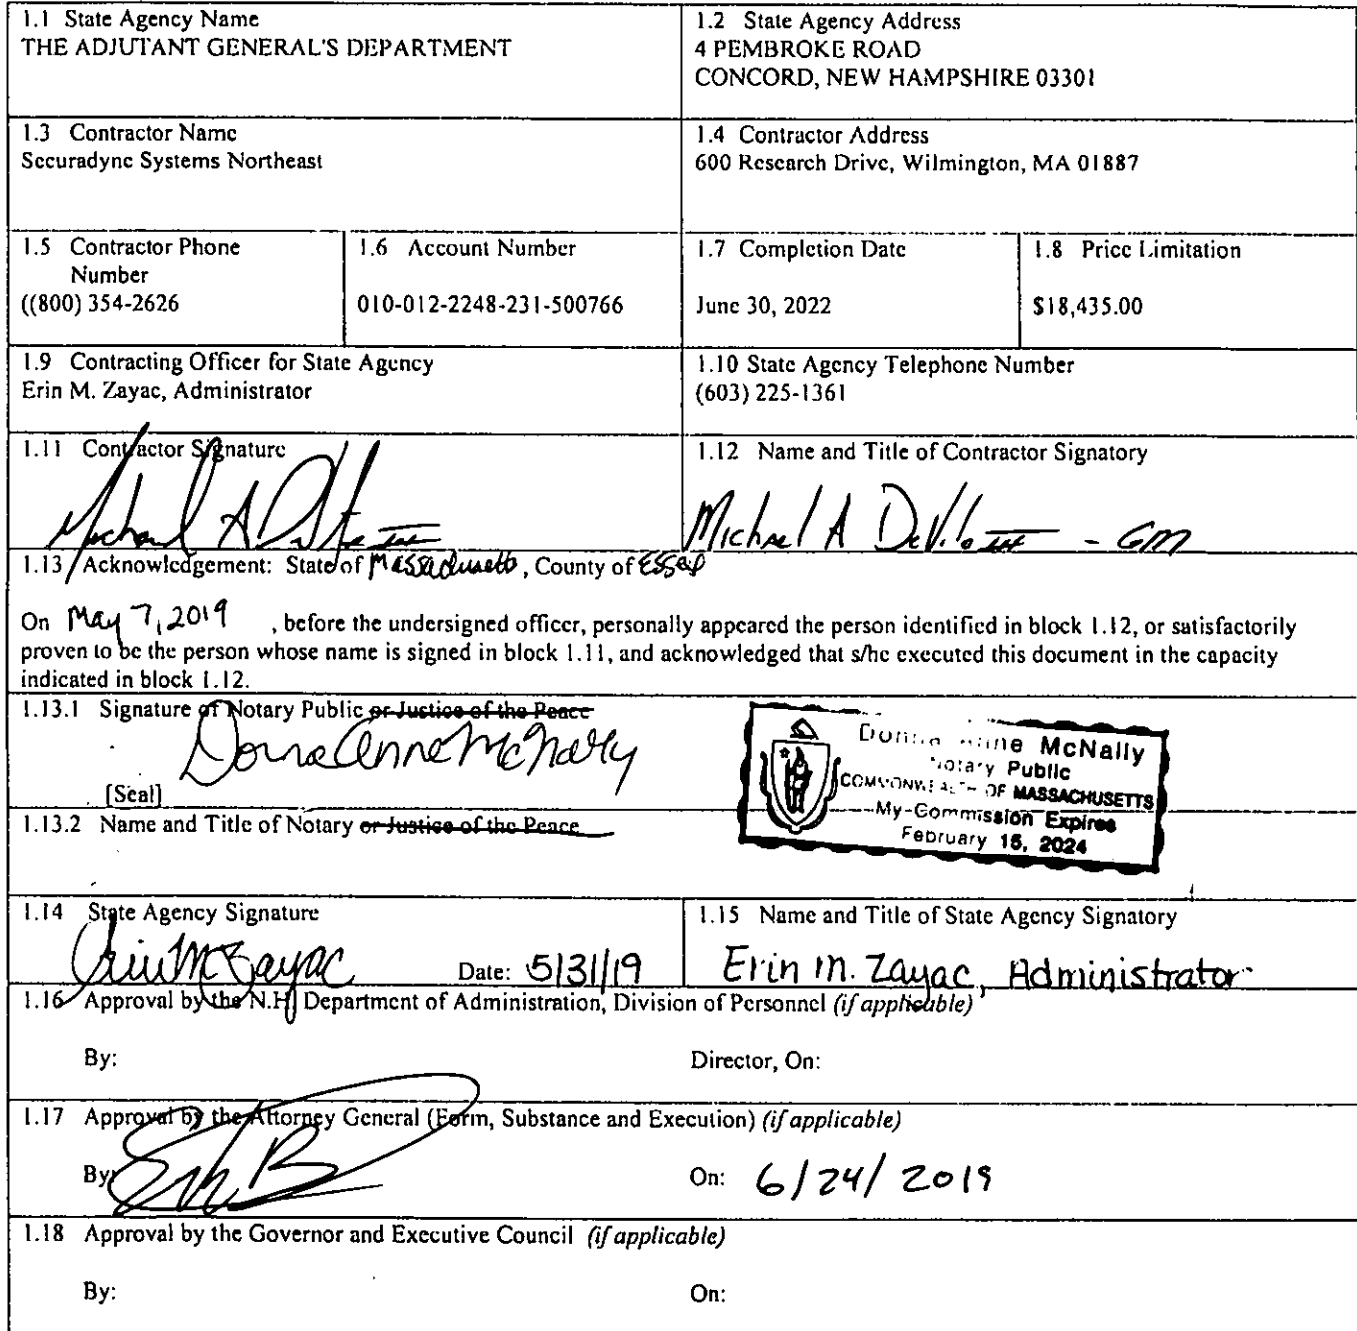 1.1 State Agency Name
THE ADJUTANT GENERAL'S DEPARTMENT
1.2 State Agency Address
4 PEMBROKE ROAD
CONCORD, NEW HAMPSHIRE 03301
1.3 Contractor Name
Securadyne Systems Northeast
1.4 Contractor Address
600 Research Drive, Wilmington, MA 01887
1.5 Contractor Phone
Number
((800) 354-2626
1.6 Account Number
010-012-2248-231-500766
1.7 Completion Date
June 30, 2022
1.8 Price Limitation
$18,435.00
1.9 Contracting Officer for State Agency
Erin M. Zayac, Administrator
1.10 State Agency Telephone Number
(603) 225-1361
1.11 Contractor Signature
Michael A
1.12 Name and Title of Contractor Signatory
Michael A - GM
1.13 Acknowledgement: State of Massachusetts, County of Essex
On May 7, 2019 , before the undersigned officer, personally appeared the person identified in block 1.12, or satisfactorily
proven to be the person whose name is signed in block 1.11, and acknowledged that s/he executed this document in the capacity
indicated in block 1.12.
1.13.1 Signature of Notary Public or Justice of the Peace
Donna Anne McNally
[Seal]
Donna Anne McNally
Notary Public
COMMONWEALTH OF MASSACHUSETTS
My Commission Expires
February 15, 2024
1.13.2 Name and Title of Notary or Justice of the Peace
1.14 State Agency Signature
Erin M Zayac Date: 5/31/19
1.15 Name and Title of State Agency Signatory
Erin M. Zayac, Administrator
1.16 Approval by the N.H. Department of Administration, Division of Personnel (if applicable)
By: Director, On:
1.17 Approval by the Attorney General (Form, Substance and Execution) (if applicable)
By: On: 6/24/2019
1.18 Approval by the Governor and Executive Council (if applicable)
By: On: